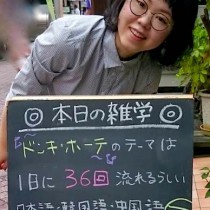 ◎本日の雑学◎
ドンキ・ホーテのテーマは
1日に36回流れるらしい
日本語・韓国語・中国語